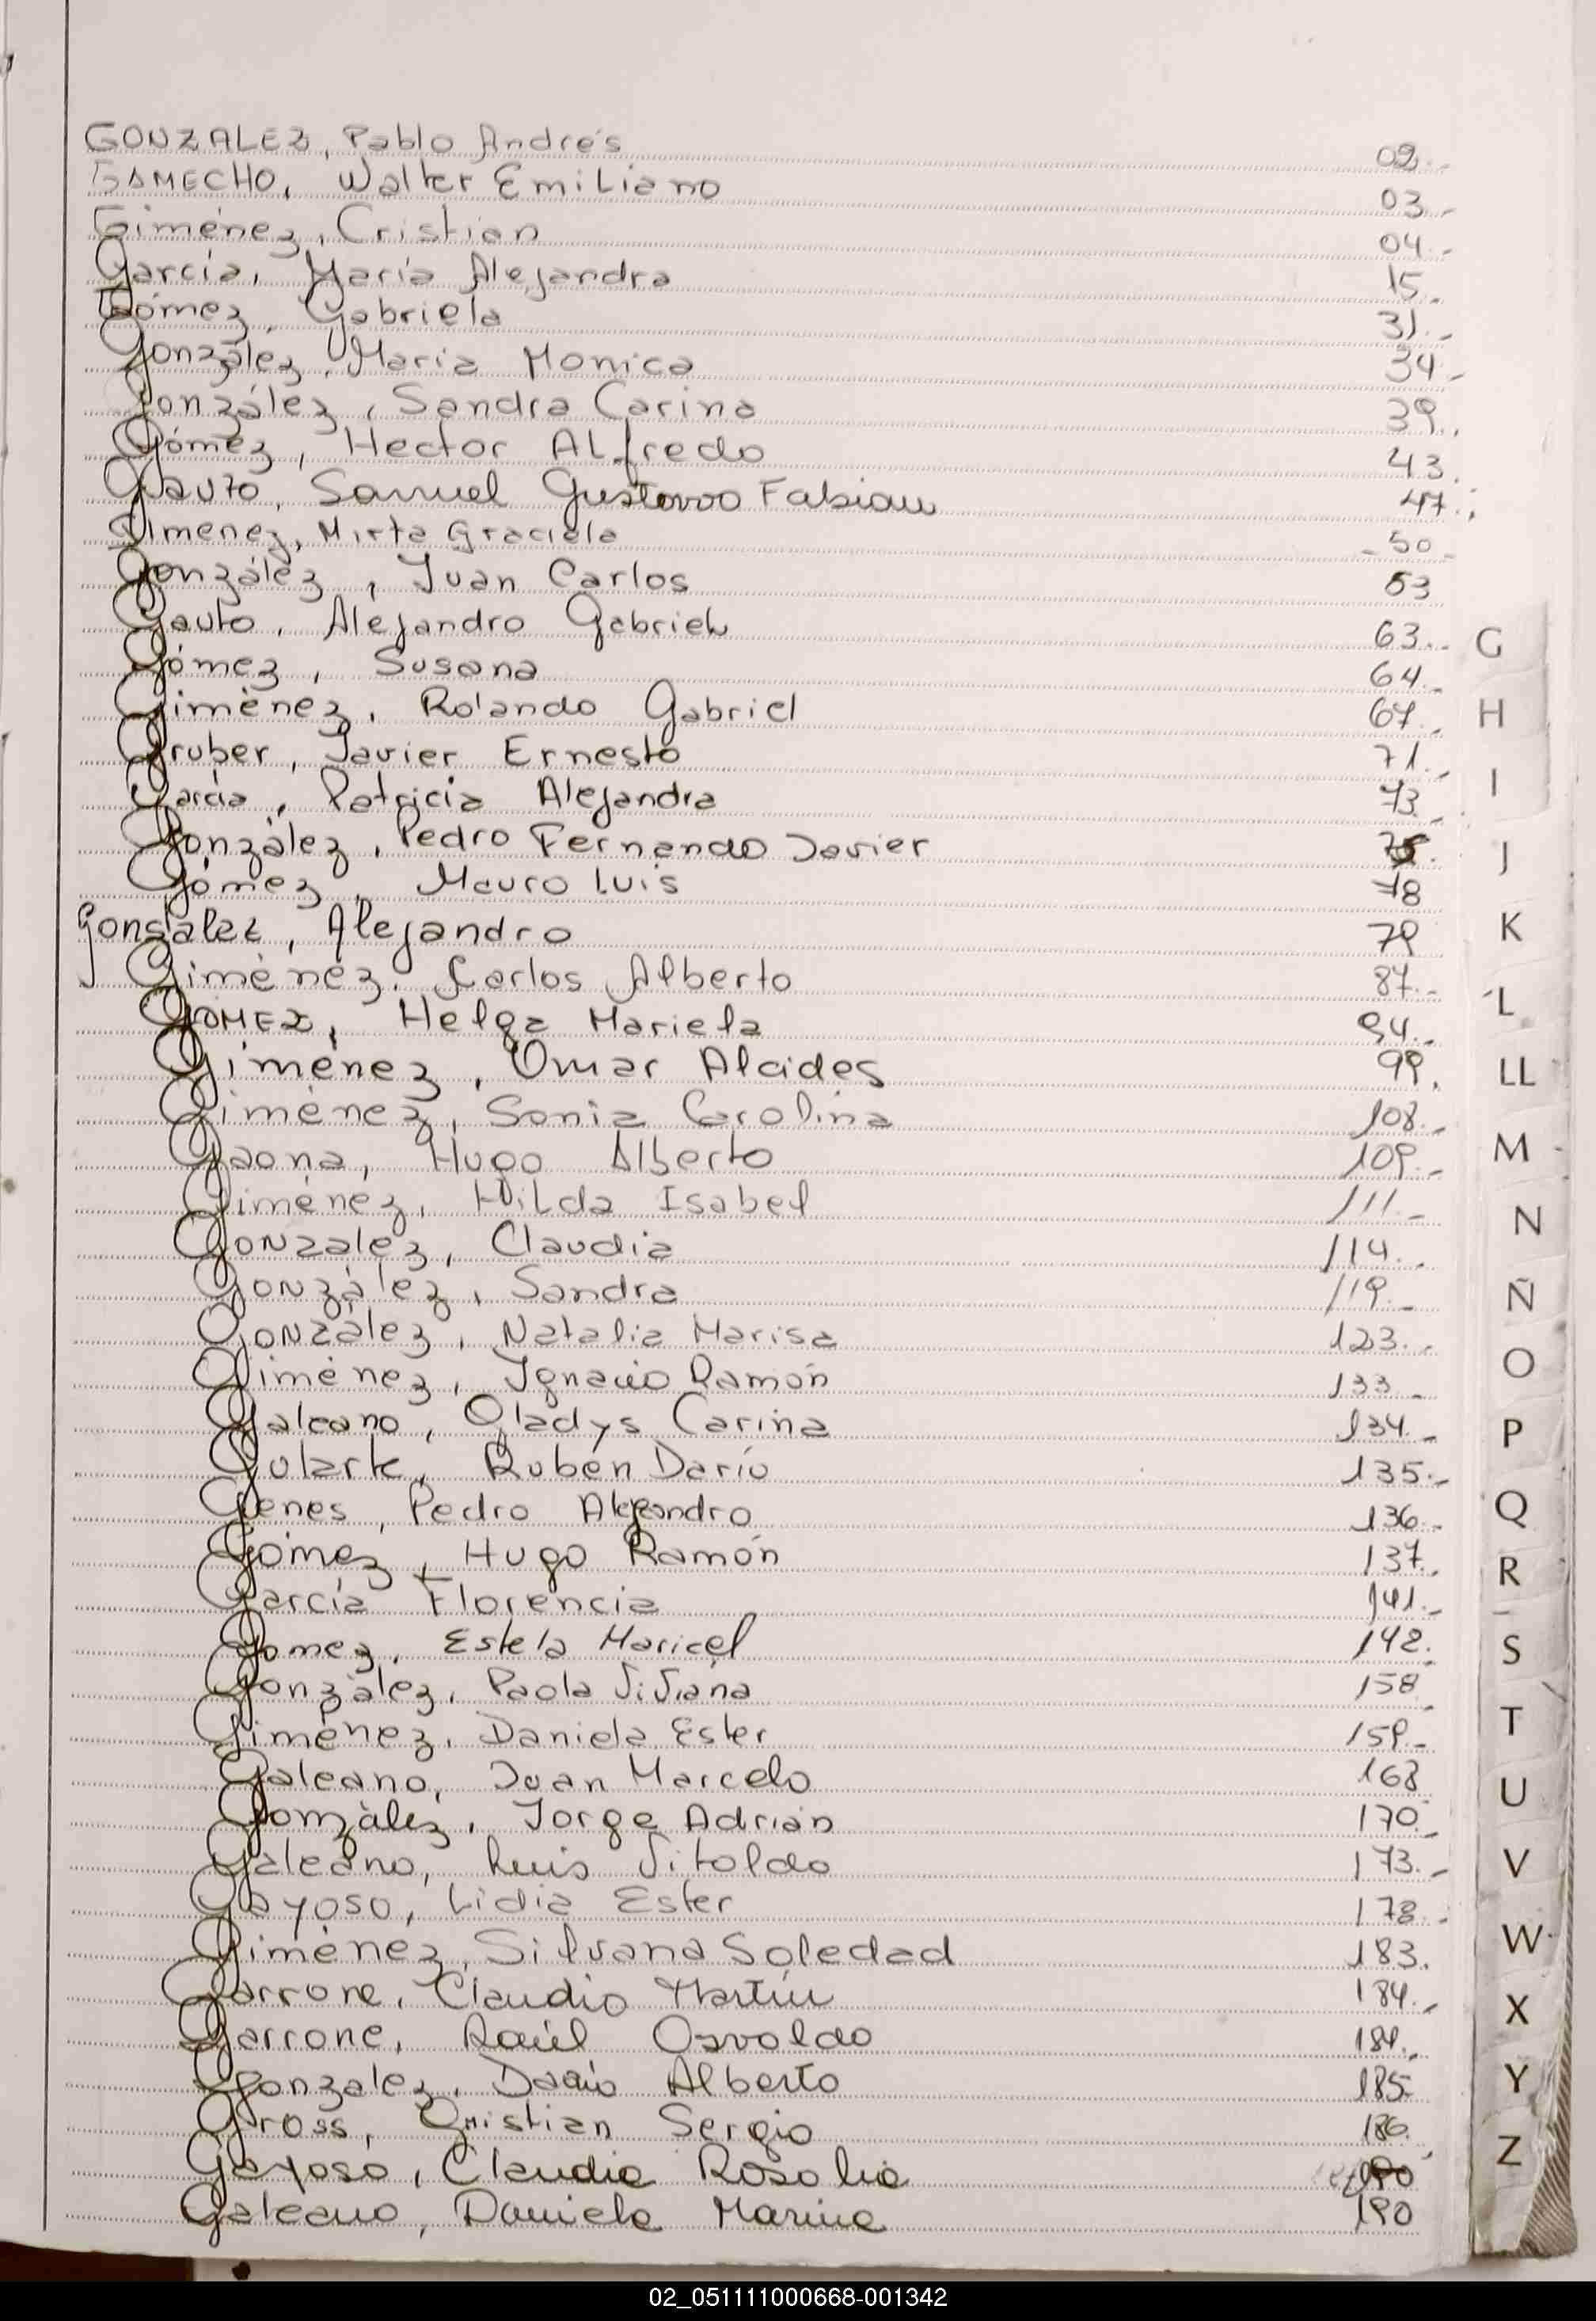 GONZALEZ, Pablo Andrés 02.-
GAMECHO, Walter Emiliano 03.-
Giménez, Cristian 04.-
García, María Alejandra 15.-
Gómez, Gabriela 31.-
González, Maria Monica 34.-
González, Sandra Carina 39.,
Gómez, Hector Alfredo 43.
Gauto, Samuel Gustavoo Fabian 47.;
Gimenez, Mirta Graciela -50-
González, Juan Carlos 53
Gauto, Alejandro Gabriel 63.-
Gómez, Susana 64.-
Giménez, Rolando Gabriel 67.-
Gruber, Javier Ernesto 71.-
García, Patricia Alejandra 73.-
González, Pedro Fernando Javier 75.
Gómez, Mauro Luis 78
Gonsalez, Alejandro 79
Giménez. Carlos Alberto 87.-
GOMEZ, Helga Mariela 94.-
Giménez, Omar Alcides 99.
Giménez, Sonia Carolina 108.-
Gaona, Hugo Alberto 109.-
Giménez, Hilda Isabel 111.-
Gonzalez, Claudia 114.-
González, Sandra 119.-
González, Natalia Marisa 123.-
Giménez, Ignacio Ramón 133-
Galeano, Gladys Carina 134.-
Gularte, Rubén Darío 135.-
Genes, Pedro Alejandro 136.-
Gómez, Hugo Ramón 137.-
García Florencia 141.-
Gomez, Estela Maricel 142.-
González, Paola Viviana 158-
Giménez, Daniela Ester 159.-
Galeano, Juan Marcelo 168
González, Jorge Adrián 170.-
Galeano, Luis Vitoldo 173.-
Gayoso, Lidia Ester 178.-
Giménez, Silvana Soledad 183.
Garrone, Claudio Martín 184.-
Garrone, Raúl Osvaldo 184.-
Gonzalez, Dario Alberto 185-
Gross, Cristian Sergio 186.
Gayoso, Claudia Rosalia 190
Galeano, Daniela Marina 190
G
H
I
J
K
L
LL
M
N
Ñ
O
P
Q
R
S
T
U
V
W
X
Y
Z
02_051111000668-001342